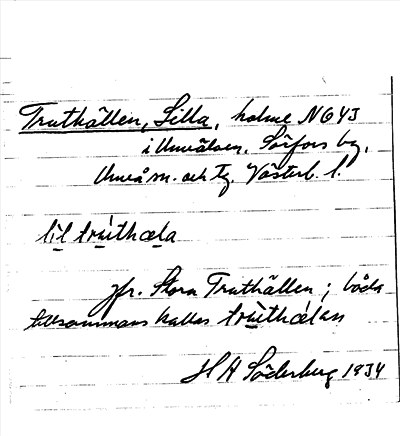 Truthällen, Lilla, holme N 6 43
i Umeälven, Sörfors by,
Umeå sn. och Tg. Västerb. l.
lìl trùthæla
jfr. Stora Truthällen; båda
tillsammans kallas trùthælan
H A Söderberg 1934